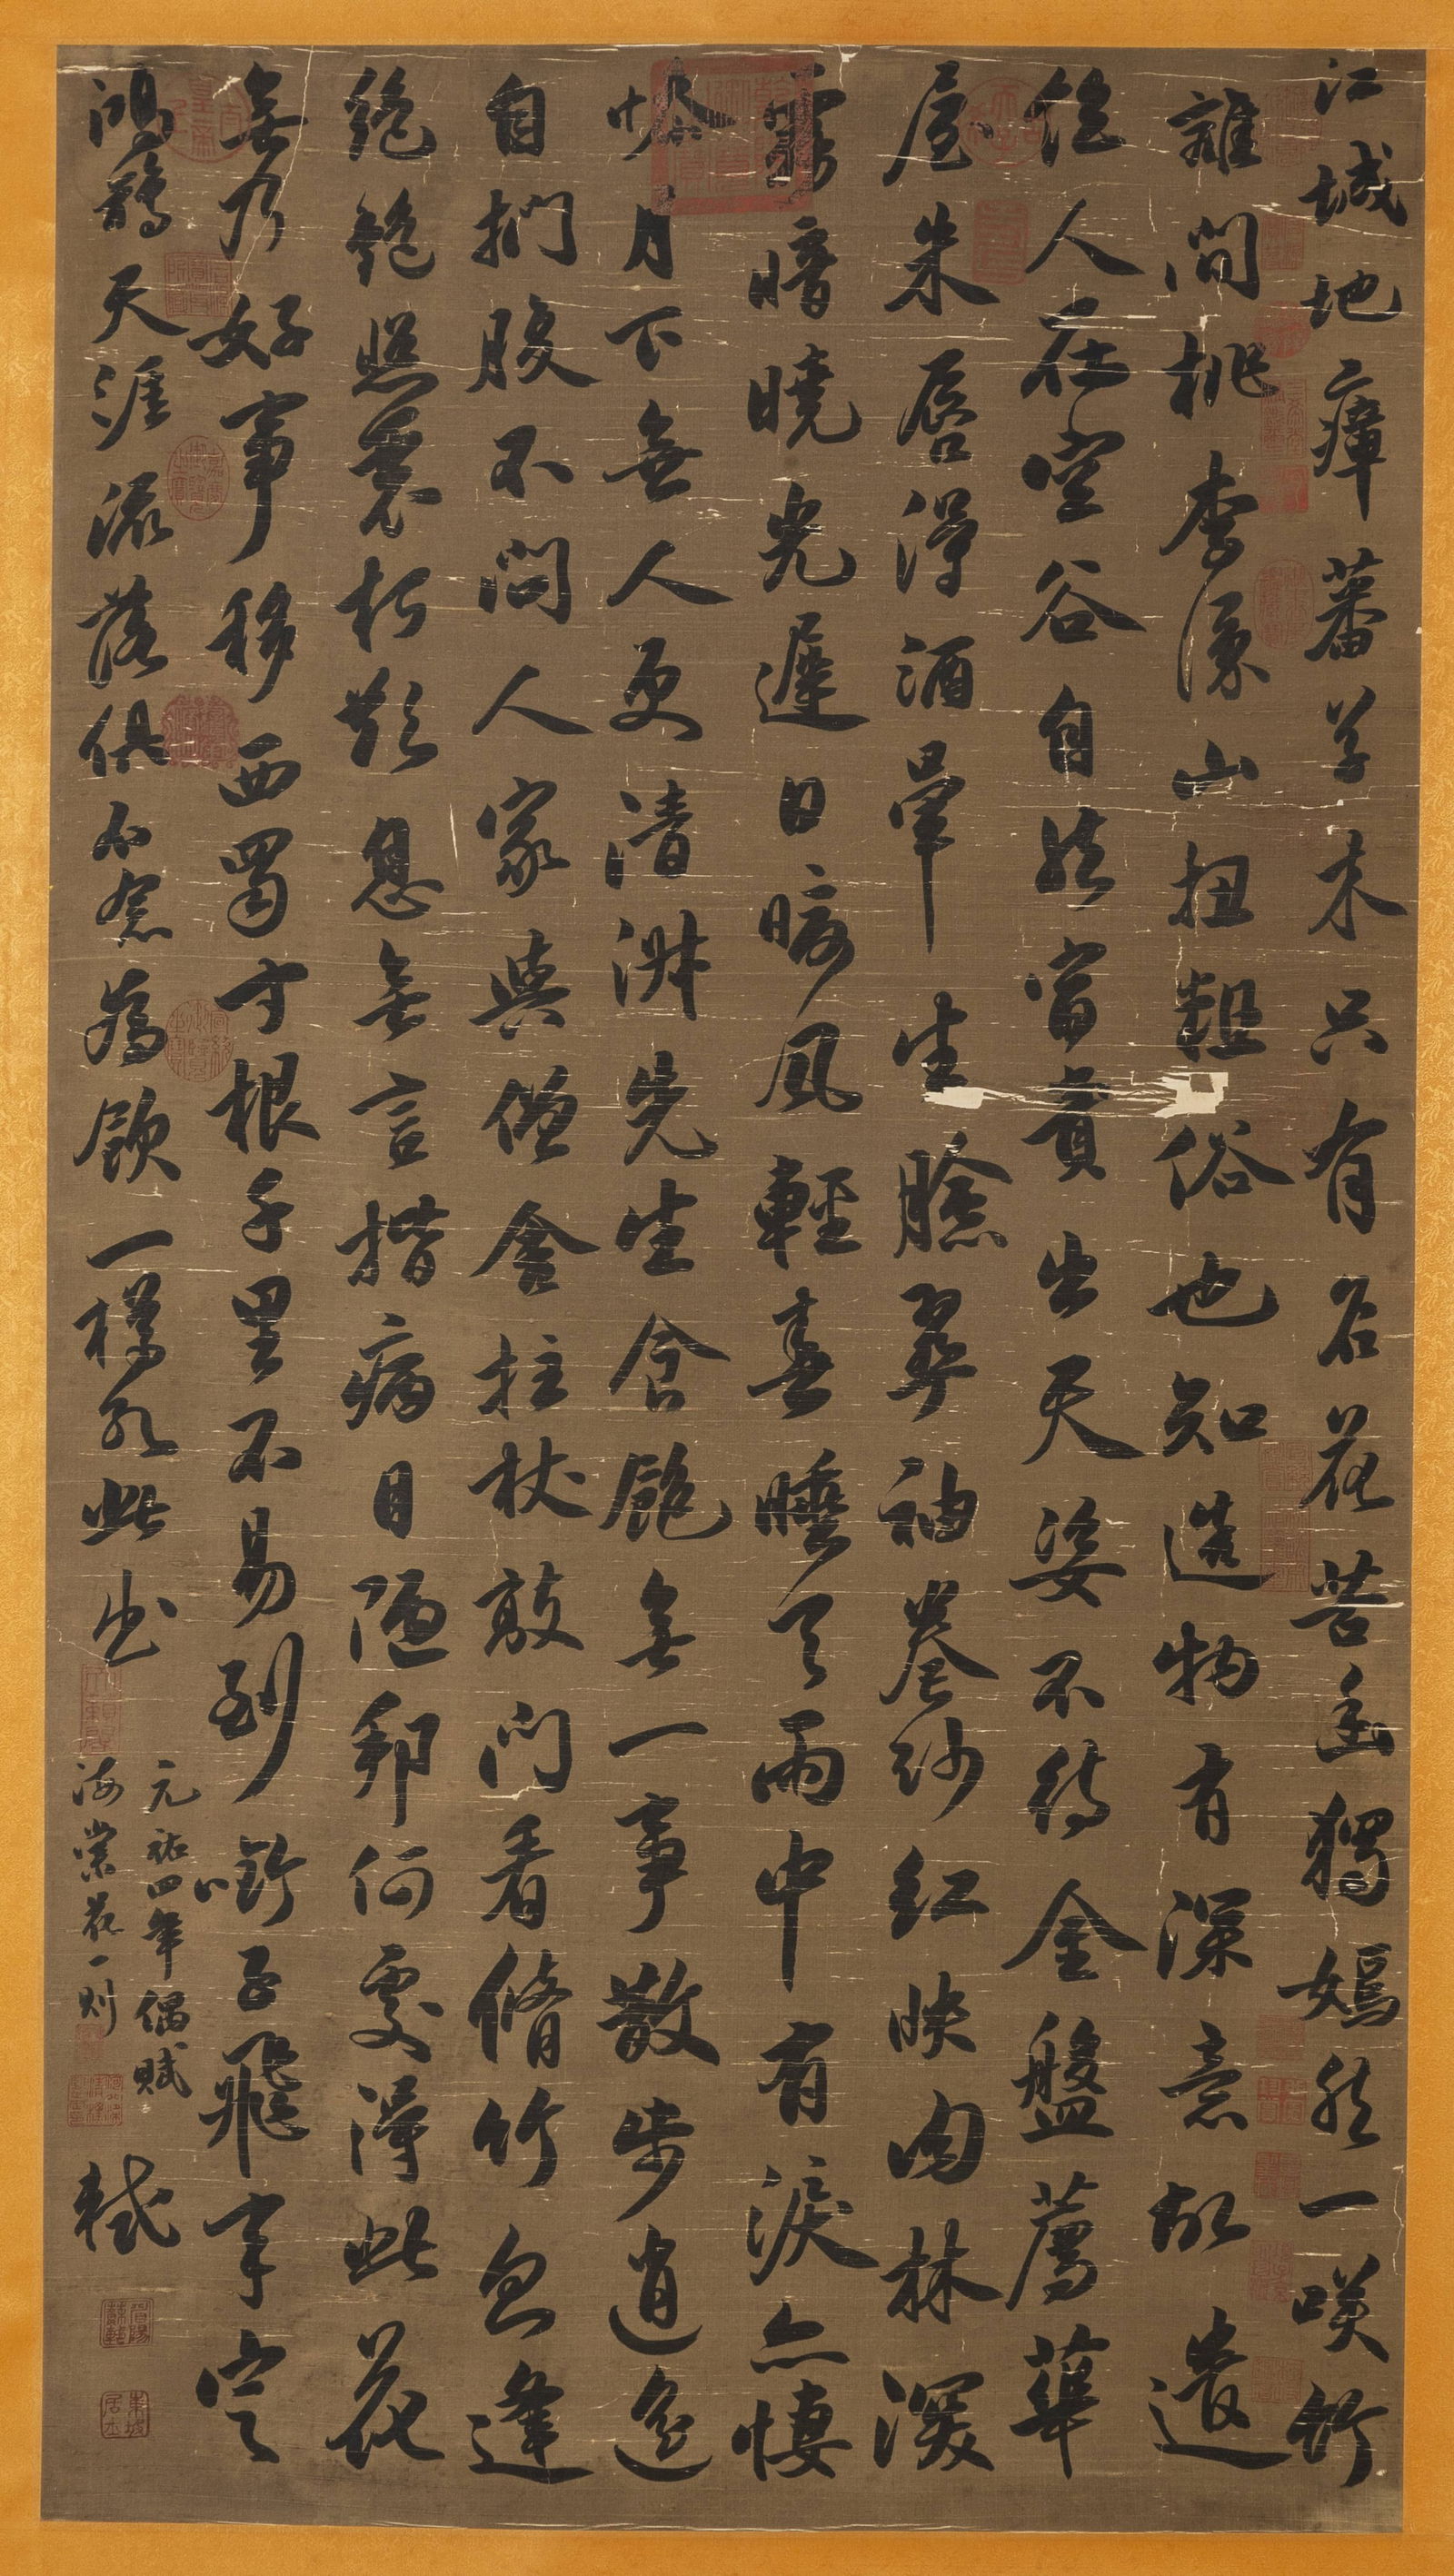 江城地瘴蕃草木只有名花苦幽獨嫣然一笑竹
籬間桃李漫山揔粗俗也知造物有深意故遣
佳人在空谷自然富貴出天姿不待金盤薦華
屋朱唇得酒暈生臉翠袖卷紗紅映肉林深
霧暗曉光遲日暖風輕春睡足雨中有淚亦悽
愴月下無人更清淑先生食飽無一事散步逍遙
自捫腹不問人家與僧舍拄杖敲門看脩竹忽逢
絕艷照衰朽歎息無言揩病目陋邦何處得此花
無乃好事移西蜀寸根千里不易到銜子飛來定
鴻鵠天涯流落俱可念為飲一樽歌此曲
元祐四年偶賦
海棠花一則
軾
眉陽蘇軾
東坡居士